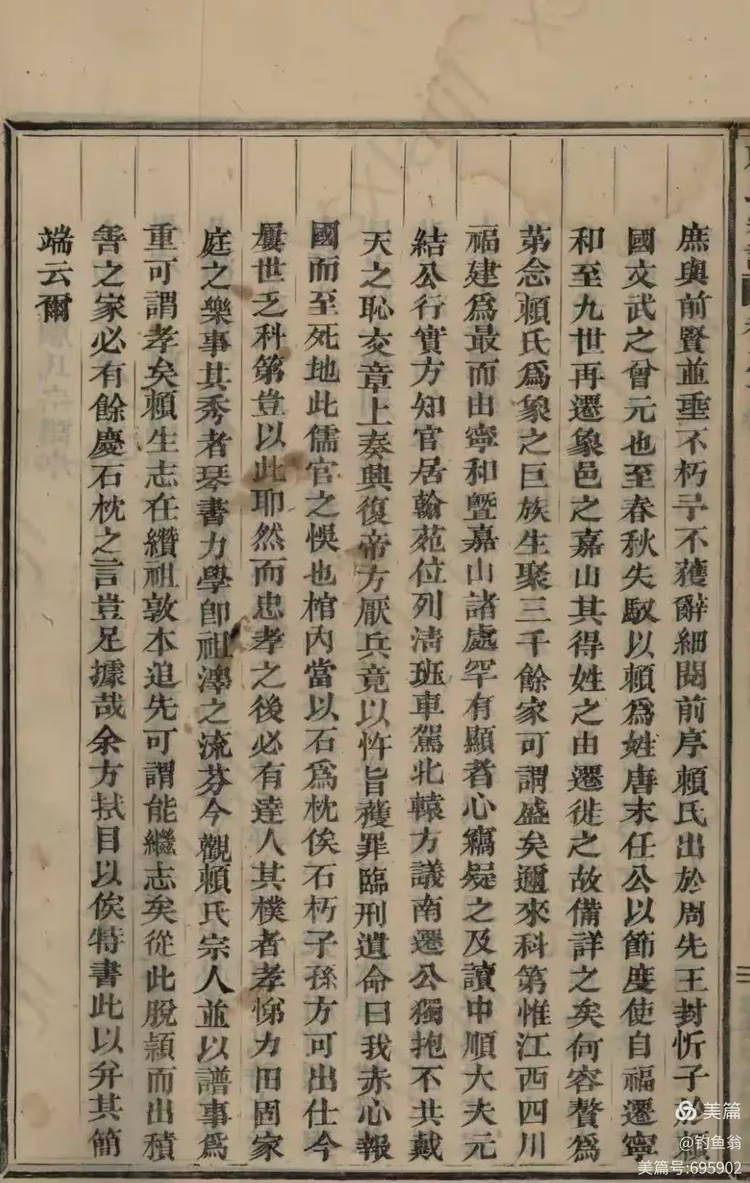 庶與前賢並垂不朽予不獲辭細閱前序賴氏出於周先王封忻子於賴
國文武之曾元也至春秋失馭以賴爲姓唐末任公以節度使自福遷寧
和至九世再遷象邑之嘉山其得姓之由遷徙之故備詳之矣何容贅爲
第念賴氏爲象之巨族生聚三千餘家可謂盛矣邇來科第惟江西四川
福建爲最而由寧和曁嘉山諸處罕有顯者心竊疑之及讀中順大夫元
結公行實方知官居翰苑位列淸班車駕北轅方議南遷公獨抱不共戴
天之恥交章上奏興復帝方厭兵竟以忤旨獲罪臨刑遺命曰我赤心報
國而至死地此儒官之悞也棺內當以石爲枕俟石朽子孫方可出仕今
屢世乏科第豈以此耶然而忠孝之後必有達人其樸者孝悌力田固家
庭之樂事其秀者琴書力學卽祖澤之流芬今觀賴氏宗人並以譜事爲
重可謂孝矣賴生志在纘祖敦本追先可謂能繼志矣從此脫穎而出積
善之家必有餘慶石枕之言豈足據哉余方拭目以俟特書此以弁其簡
端云爾
美篇
@钓鱼翁
美篇号:695902